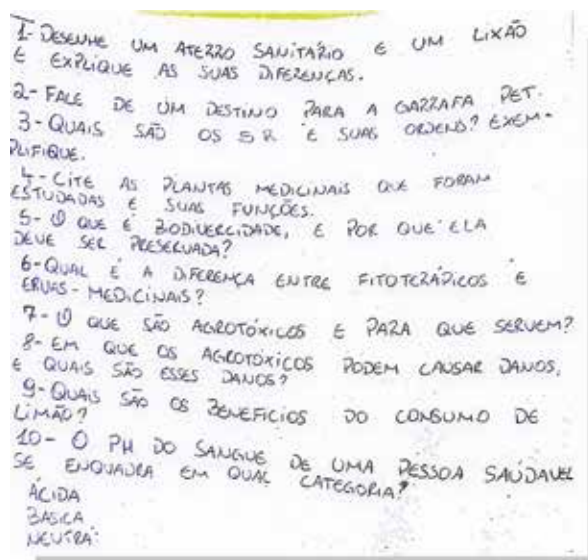 1- DESENHE UM ATERRO SANITÁRIO E UM LIXÃO
E EXPLIQUE AS SUAS DIFERENÇAS.
2- FALE DE UM DESTINO PARA A GARRAFA PET.
3- QUAIS SÃO OS 5 R E SUAS ORDENS? EXEM-
PLIFIQUE.
4- CITE AS PLANTAS MEDICINAIS QUE FORAM
ESTUDADAS E SUAS FUNÇÕES.
5- O QUE É BODIVERCIDADE, E POR QUE ELA
DEVE SER PRESERVADA?
6- QUAL É A DIFERENÇA ENTRE FITOTERÁPICOS E
ERVAS-MEDICINAIS?
7- O QUE SÃO AGROTÓXICOS E PARA QUE SERVEM?
8- EM QUE OS AGROTÓXICOS PODEM CAUSAR DANOS,
E QUAIS SÃO ESSES DANOS?
9- QUAIS SÃO OS BENEFICIOS DO CONSUMO DE
LIMÃO?
10- O PH DO SANGUE DE UMA PESSOA SAUDAVEL
SE ENQUADRA EM QUAL CATEGORIA?
ÁCIDA
BASICA
NEUTRA: